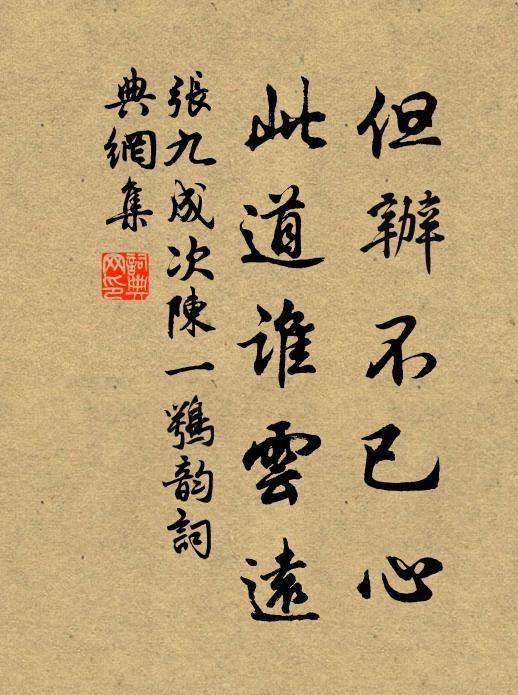 但辦不已心
此道誰雲遠
張九成次陳一鶚韵詞
典網集
詞典網印